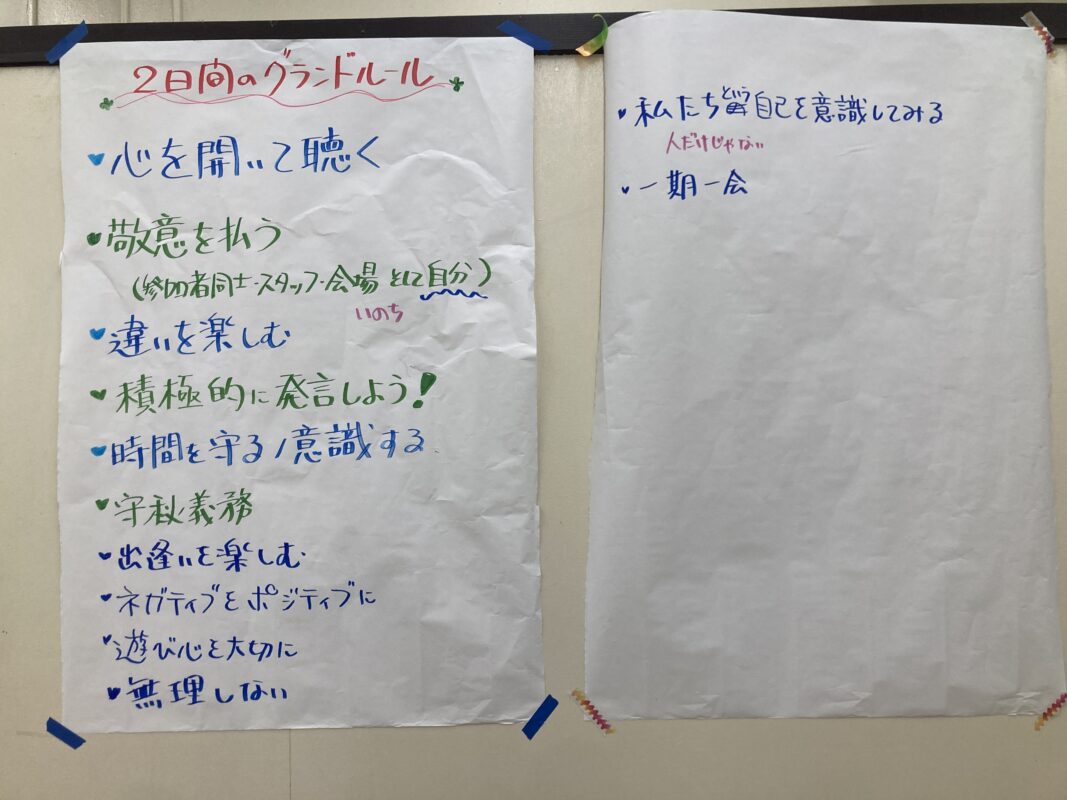 2日間のグランドルール
心を開いて聴く
敬意を払う
(参加者同士・スタッフ・会場 そして自分)
いのち
違いを楽しむ
積極的に発言しよう!
時間を守る/意識する
守秘義務
出逢いを楽しむ
ネガティブをポジティブに
遊び心を大切に
無理しない
私たちという自己を意識してみる
人だけじゃない
一期一会